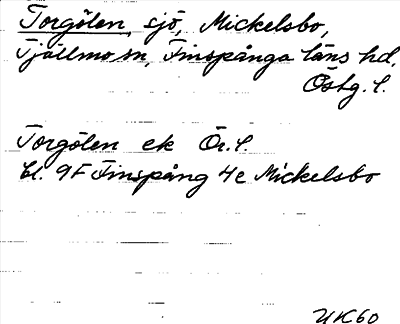 Torgölen, sjö, Mickelsbo,
Tjällmo sn, Finspånga läns hd,
Östg. l.
Torgölen ek Ör. l.
bl. 9F Finspång 4e Mickelsbo
UK60